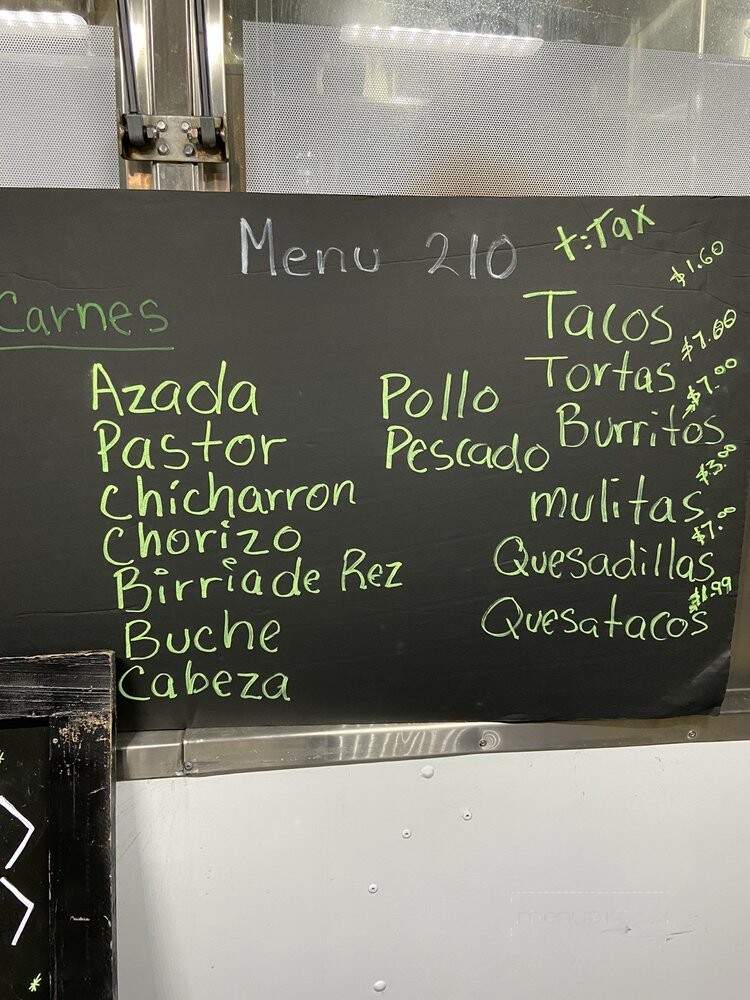 Menu 210
+:Tax
Carnes
Azada
Pastor
chicharron
chorizo
Birria de Rez
Buche
Cabeza
Pollo
Pescado
Tacos $1.60
Tortas $7.00
Burritos $7.00
mulitas $3.00
Quesadillas $7.00
Quesatacos $1.99